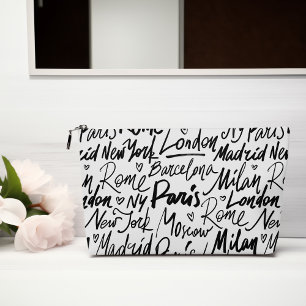 Paris Rome Ny Paris
Madrid New York London Madrid New
Rome Barcelona Milan Rome
London Ny Paris London
New York Moscow Rome New
Madrid Paris Milan